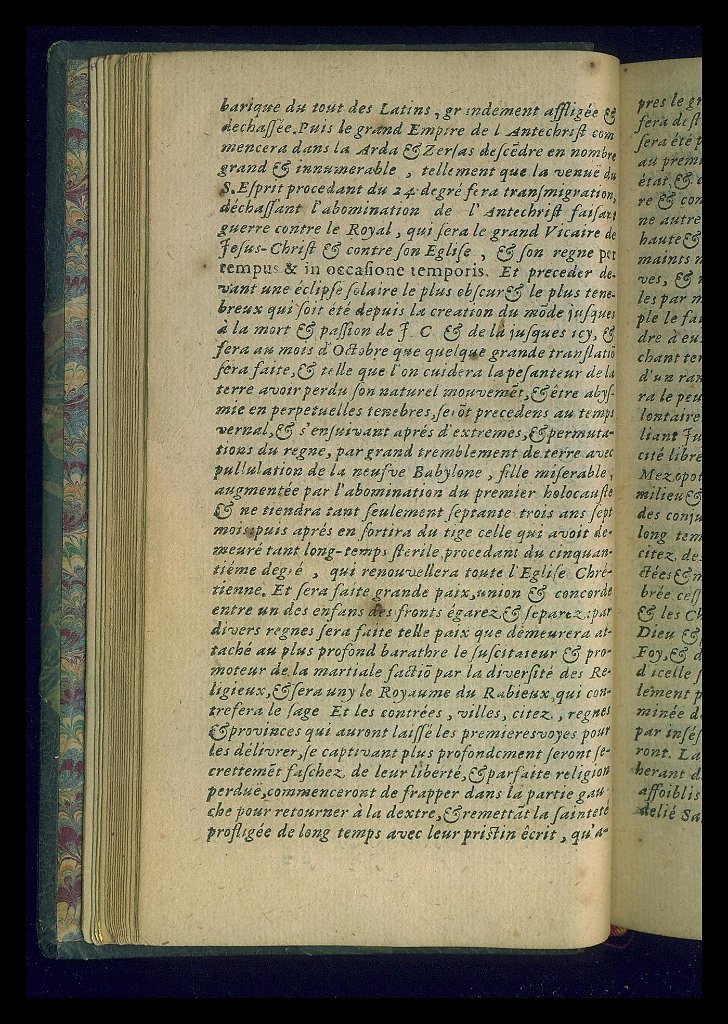 barique du tout des Latins, grandement affligée &
dechaſſée. Puis le grand Empire de l Antechriſt com
mencera dans la Arda & Zerſas deſcẽdre en nombre
grand & innumerable, tellement que la venuë du
S. Eſprit procedant du 24 degré fera tranſmigration,
déchaſſant l'abomination de l'Antechriſt faiſant
guerre contre le Royal, qui ſera le grand Vicaire de
Jeſus-Chriſt & contre ſon Egliſe, & ſon regne per
tempus & in occaſione temporis. Et preceder de-
vant une éclipſe ſolaire le plus obſcur & le plus tene-
breux qui ſoit été depuis la creation du mõde juſques
à la mort & paſſion de J. C. & de là juſques icy, &
ſera au mois d'Octobre que quelque grande tranſlatiõ
ſera faite, & telle que l'on cuidera la peſanteur de la
terre avoir perdu ſon naturel mouvemẽt, & être abyſ-
mie en perpetuelles tenebres, ſerõt precedens au temps
vernal, & s'enſuivant aprés d'extremes, & permuta-
tions du regne, par grand tremblement de terre avec
pullulation de la neufve Babylone, fille miſerable,
augmentée par l'abomination du premier holocauſte
& ne tiendra tant ſeulement ſeptante trois ans ſept
mois, puis aprés en ſortira du tige celle qui avoit de-
meuré tant long-temps ſterile, procedant du cinquan-
tiéme degré, qui renouvellera toute l'Egliſe Chré-
tienne. Et ſera faite grande paix, union & concorde
entre un des enfans des fronts égarez & ſeparez: par
divers regnes ſera faite telle paix que démeurera at-
taché au plus profond barathre le ſuſcitateur & pro-
moteur de la martiale factiõ par la diverſité des Re-
ligieux, & ſera uny le Royaume du Rabieux, qui con-
trefera le ſage Et les contrées, villes, citez, regnes
& provinces qui auront laiſſé les premieres voyes pour
les délivrer, ſe captivant plus profondement ſeront ſe-
crettemẽt faſchez de leur liberté, & parfaite religion
perduë, commenceront de frapper dans la partie gau-
che pour retourner à la dextre, & remettãt la ſainteté
profligée de long temps avec leur priſtin écrit, qu'a-
pres le gr
ſera deſt
ſera été p
au premi
état, & c
re & con
ne autre
haute &
maints n
ves, & 
les par m
ple le fai
dre à eu
chant ter
d'un ran
ra le peu
lontaire
liant Ju
cité libre
Mezopot
milieu &
des conju
long tem
citez, de
ctées & n
brée ceſſ
& les Ch
Dieu &
Foy, & d
d icelle ſ
lement p
minée d
par inſéſ
ront. La
herant d
affoiblis
delié Sa